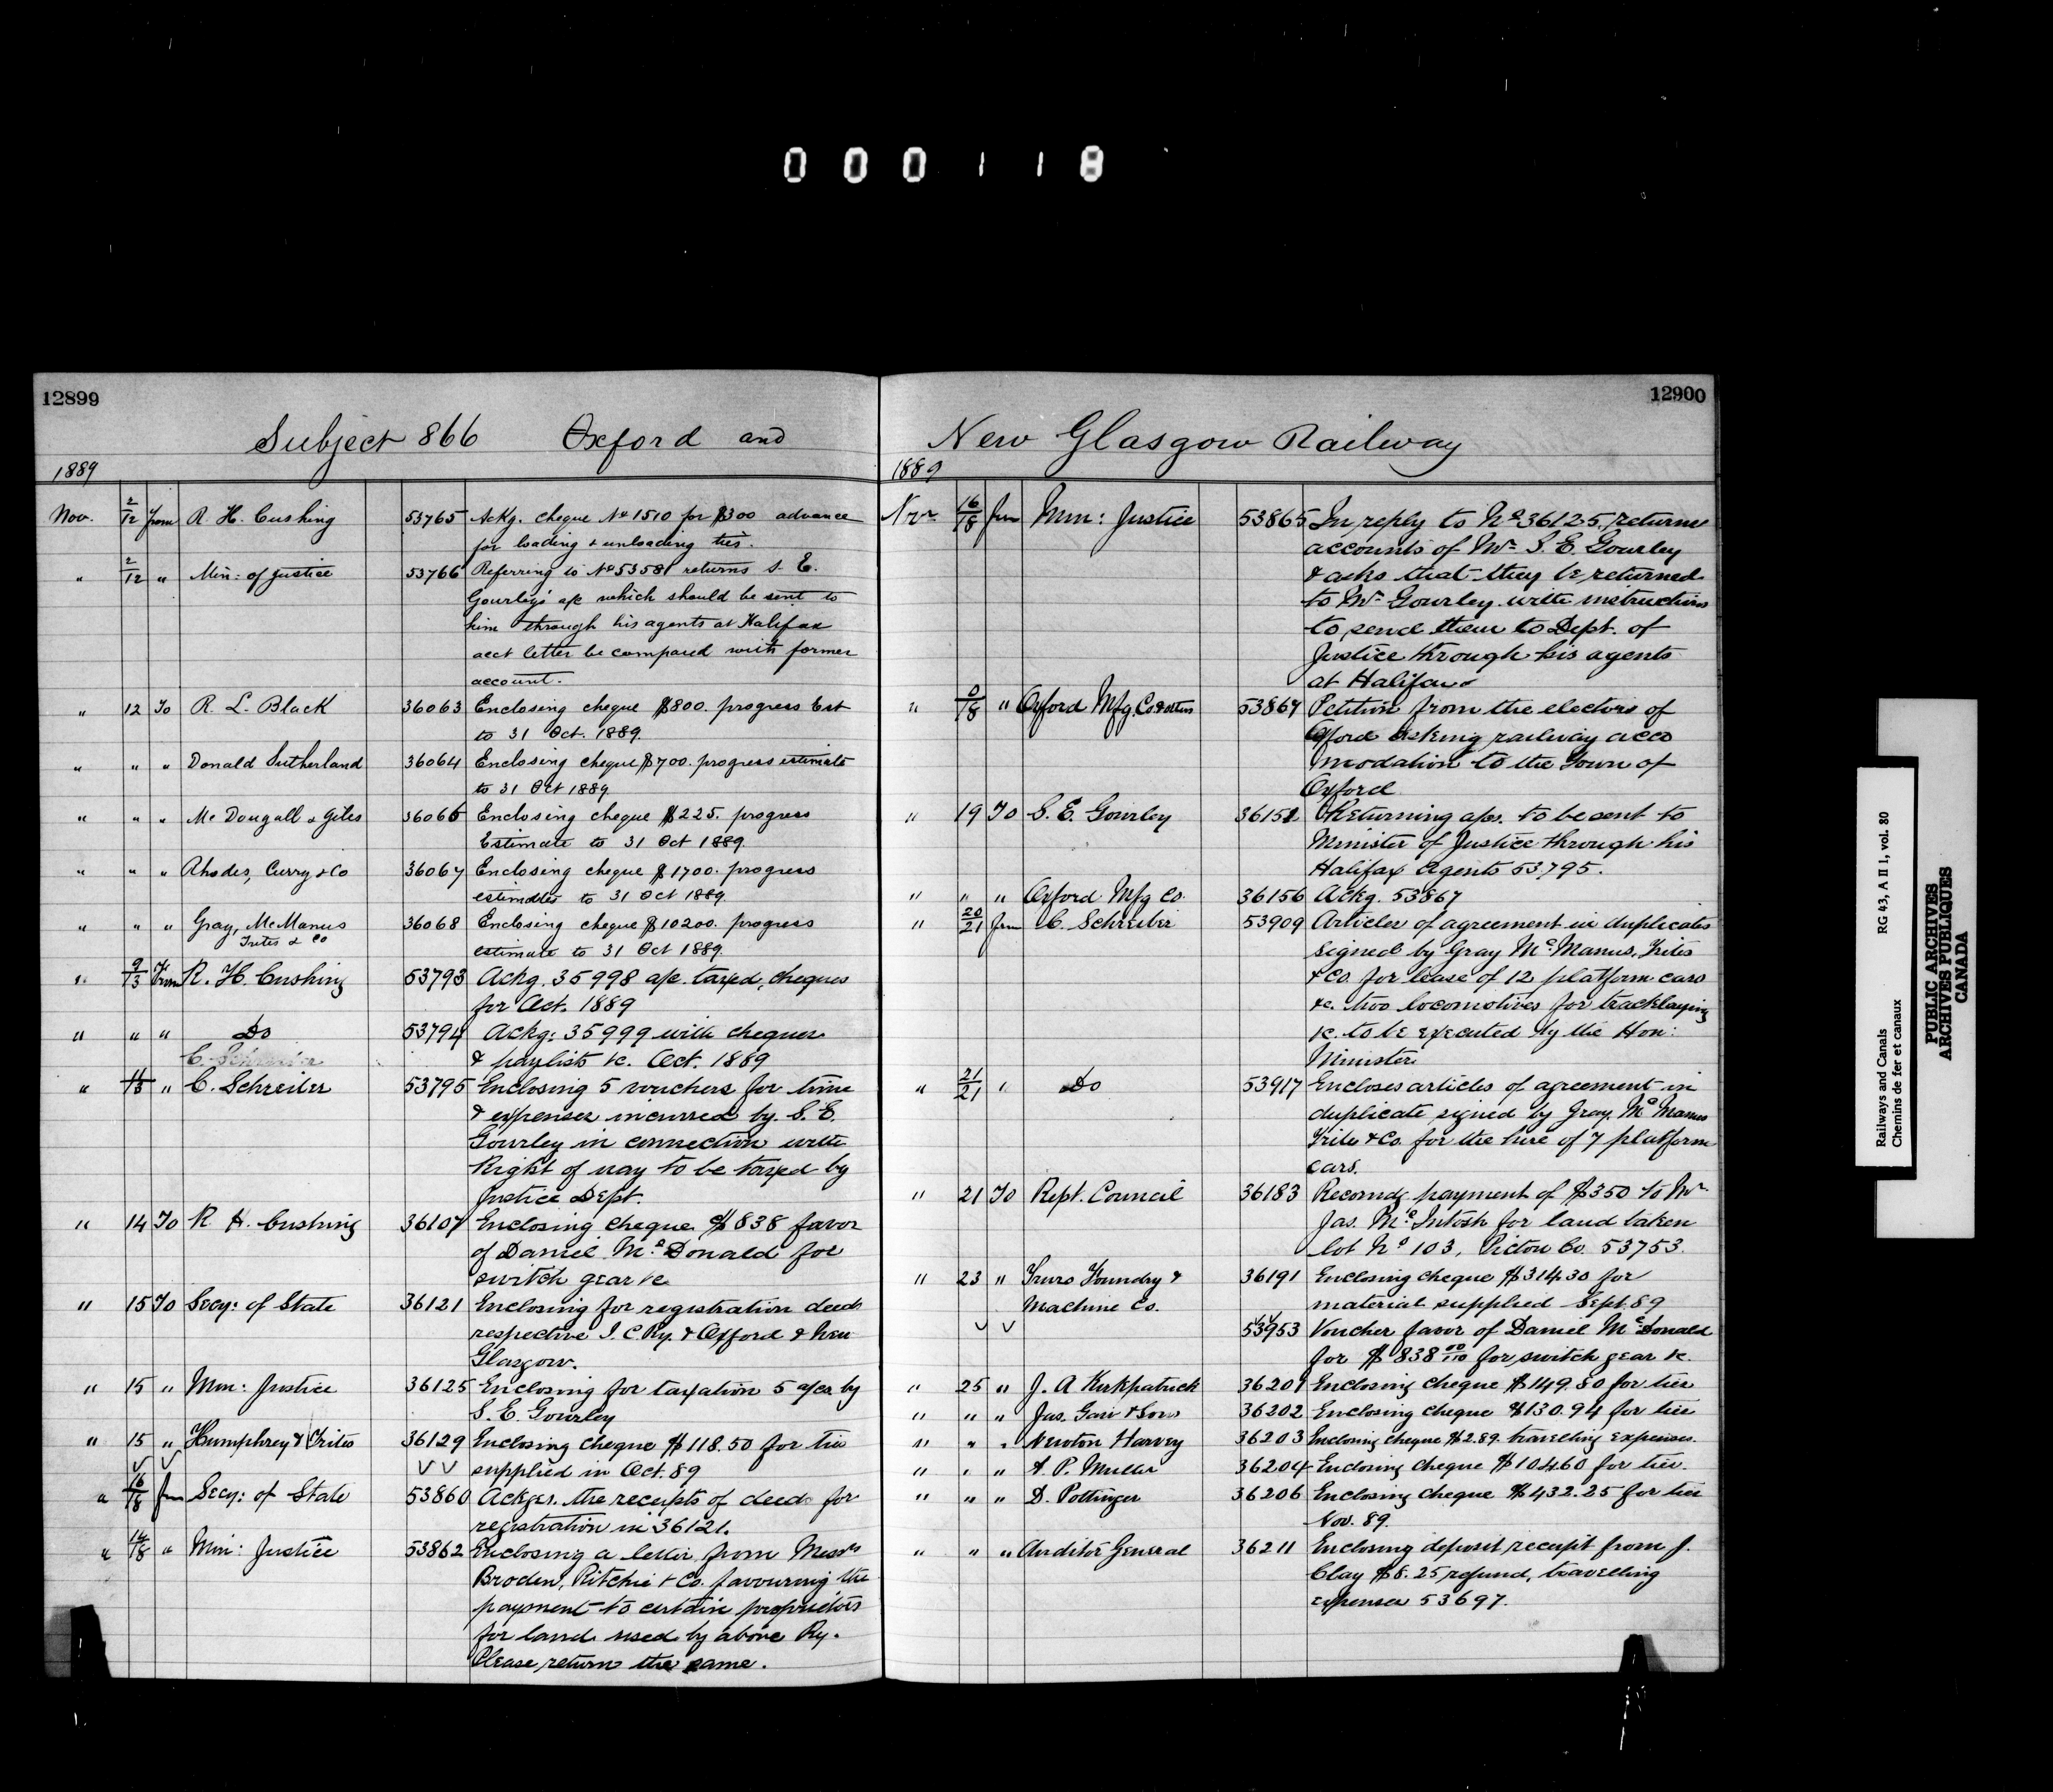 000118
12899
Subject 866 Oxford and
1889
Nov. 2/12 from R. H. Cushing 53765 Ackg. cheque No 1510 for $300 advance
for loading & unloading ties.
" 2/12 " Min: of Justice 53766 Referring to No 53581 returns S. E.
Gourley's a/c which should be sent to
him through his agents at Halifax
acct letter be compared with former
account.
" 12 To R. L. Black 36063 Enclosing cheque $800. progress Est
to 31 Oct. 1889.
" " " Donald Sutherland 36064 Enclosing cheque $700. progress estimate
to 31 Oct 1889
" " " Mc Dougall & Giles 36066 Enclosing cheque $225. progress
Estimate to 31 Oct 1889.
" " " Rhodes, Curry & Co 36067 Enclosing cheque $1700. progress
estimates to 31 Oct 1889.
" " " Gray, McManus 36068 Enclosing cheque $10200. progress
Trites & Co
estimate to 31 Oct 1889.
" 9/13 From R. H. Cushing 53793 Ackg. 35998 a/c. taxed, cheques
for Oct. 1889
" " " Do 53794 Ackg: 35999 with cheques
C. Schreiber
& paylists &c. Oct. 1889
" 11/13 " C. Schreiber 53795 Enclosing 5 vouchers for time
& expenses incurred by. S. E.
Gourley in connection with
Right of way to be taxed by
Justice Dept.
" 14 To R. H. Cushing 36107 Enclosing cheque $838 favor
of Daniel Mc Donald for
switch gear &c
" 15 To Secy: of State 36121 Enclosing for registration deeds
respective I. C. Ry. & Oxford & New
Glasgow.
" 15 " Min: Justice 36125 Enclosing for taxation 5 a/cs by
S. E. Gourley
" 15 " Humphrey & Trites 36129 Enclosing cheque $118.50 for ties
supplied in Oct. 89
" 16/18 frm Secy: of State 53860 Ackges. the receipts of deeds for
registration in 36121.
" 14/18 " Min: Justice 53862 Enclosing a letter from Messrs
Broden, Ritchie & Co. favouring the
payment to certain proprietors
for land used by above Ry.
Please return the same.
12900
New Glasgow Railway
1889
Nov 16/18 frm Min: Justice 53865 In reply to No 36125, returns
accounts of Mr S. E. Gourley
& asks that they be returned
to Mr Gourley with instructions
to send them to Dept. of
Justice through his agents
at Halifax
" /18 " Oxford Mfg. Co & others 53867 Petition from the electors of
Oxford asking railway acco
modation to the Town of
Oxford
" 19 To S. E. Gourley 36152 Returning a/cs. to be sent to
Minister of Justice through his
Halifax Agents 53795.
" " " Oxford Mfg Co. 36156 Ackg. 53867
" 20/21 frm C. Schreiber 53909 Articles of agreement in duplicates
signed by Gray Mc Manus, Trites
& Co. for lease of 12 platform cars
&c. two locomotives for tracklaying
&c. to be executed by the Hon:
Minister
" 21/21 " Do 53917 Encloses articles of agreement in
duplicate signed by Gray, Mc Manus
Trites & Co. for the hire of 7 platform
cars.
" 21 To Rept. Council 36183 Recomdg payment of $350 to Mr
Jas. Mc Intosh for land taken
lot No 103, Pictou Co. 53753.
" 23 " Truro Foundry & 36191 Enclosing cheque $314.30 for
Machine Co. material supplied Sept. 89
53953 Voucher favor of Daniel Mc Donald
for $838 00/100 for switch gear &c.
" 25 " J. A Kirkpatrick 36201 Enclosing cheque $149.80 for ties
" " " Jas. & Sons 36202 Enclosing cheque $130.94 for ties
" " " Newton Harvey 36203 Enclosing cheque $2.89. travelling expenses.
" " " A. P. 36204 Enclosing cheque $104.60 for ties.
" " " D. Pottinger 36206 Enclosing cheque $432.25 for ties
Nov. 89.
" " " Auditor General 36211 Enclosing deposit receipt from J.
Clay $8.25 refund, travelling
expenses 53697.
Railways and Canals RG 43, A II 1, vol. 80
Chemins de fer et canaux
PUBLIC ARCHIVES
ARCHIVES PUBLIQUES
CANADA